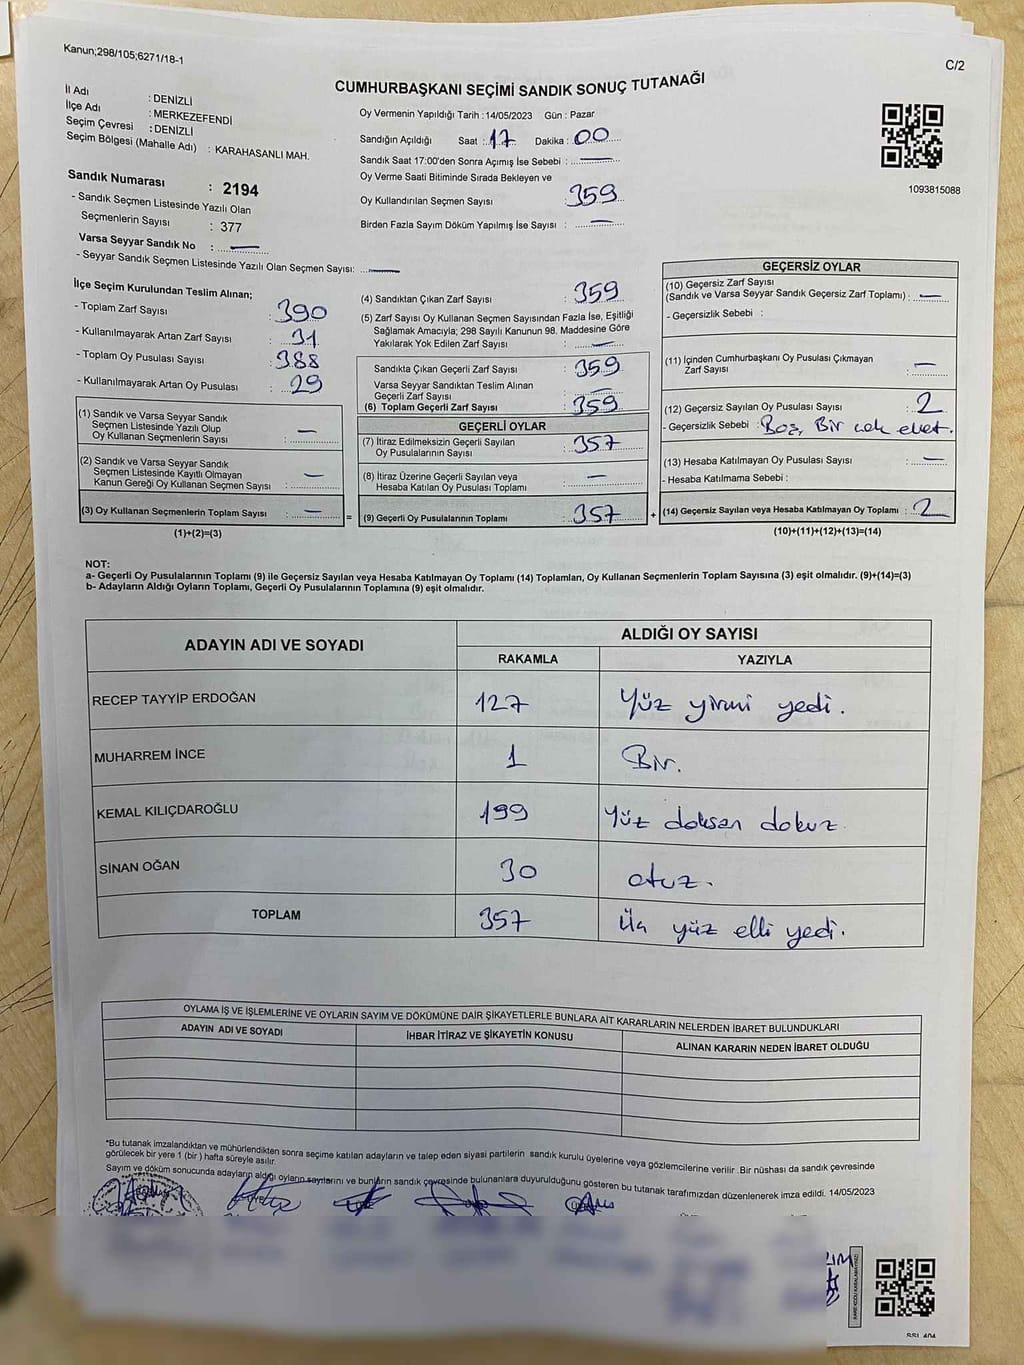 Kanun;298/105;6271/18-1
C/2
CUMHURBAŞKANI SEÇİMİ SANDIK SONUÇ TUTANAĞI
İl Adı : DENİZLİ
İlçe Adı : MERKEZEFENDİ
Seçim Çevresi : DENİZLİ
Seçim Bölgesi (Mahalle Adı) : KARAHASANLI MAH.
Sandık Numarası : 2194
- Sandık Seçmen Listesinde Yazılı Olan
Seçmenlerin Sayısı : 377
Varsa Seyyar Sandık No : —
- Seyyar Sandık Seçmen Listesinde Yazılı Olan Seçmen Sayısı: —
Oy Vermenin Yapıldığı Tarih : 14/05/2023 Gün : Pazar
Sandığın Açıldığı Saat : 17 Dakika : 00
Sandık Saat 17:00'den Sonra Açımış İse Sebebi : —
Oy Verme Saati Bitiminde Sırada Bekleyen ve
Oy Kullandırılan Seçmen Sayısı 359
Birden Fazla Sayım Döküm Yapılmış İse Sayısı : —
1093815088
İlçe Seçim Kurulundan Teslim Alınan;
- Toplam Zarf Sayısı : 390
- Kullanılmayarak Artan Zarf Sayısı : 31
- Toplam Oy Pusulası Sayısı : 388
- Kullanılmayarak Artan Oy Pusulası : 29
(1) Sandık ve Varsa Seyyar Sandık
Seçmen Listesinde Yazılı Olup
Oy Kullanan Seçmenlerin Sayısı : —
(2) Sandık ve Varsa Seyyar Sandık
Seçmen Listesinde Kayıtlı Olmayan
Kanun Gereği Oy Kullanan Seçmen Sayısı : —
(3) Oy Kullanan Seçmenlerin Toplam Sayısı : —
(1)+(2)=(3)
=
(4) Sandıktan Çıkan Zarf Sayısı : 359
(5) Zarf Sayısı Oy Kullanan Seçmen Sayısından Fazla İse, Eşitliği
Sağlamak Amacıyla; 298 Sayılı Kanunun 98. Maddesine Göre
Yakılarak Yok Edilen Zarf Sayısı : —
Sandıkta Çıkan Geçerli Zarf Sayısı : 359
Varsa Seyyar Sandıktan Teslim Alınan
Geçerli Zarf Sayısı : —
(6) Toplam Geçerli Zarf Sayısı : 359
GEÇERLİ OYLAR
(7) İtiraz Edilmeksizin Geçerli Sayılan
Oy Pusulalarının Sayısı : 357
(8) İtiraz Üzerine Geçerli Sayılan veya
Hesaba Katılan Oy Pusulası Toplamı : —
(9) Geçerli Oy Pusulalarının Toplamı : 357
+
GEÇERSİZ OYLAR
(10) Geçersiz Zarf Sayısı
(Sandık ve Varsa Seyyar Sandık Geçersiz Zarf Toplamı) : —
- Geçersizlik Sebebi :
(11) İçinden Cumhurbaşkanı Oy Pusulası Çıkmayan
Zarf Sayısı : —
(12) Geçersiz Sayılan Oy Pusulası Sayısı : 2
- Geçersizlik Sebebi : Boş, Bir çok evet.
(13) Hesaba Katılmayan Oy Pusulası Sayısı : —
- Hesaba Katılmama Sebebi :
(14) Geçersiz Sayılan veya Hesaba Katılmayan Oy Toplamı : 2
(10)+(11)+(12)+(13)=(14)
NOT:
a- Geçerli Oy Pusulalarının Toplamı (9) ile Geçersiz Sayılan veya Hesaba Katılmayan Oy Toplamı (14) Toplamları, Oy Kullanan Seçmenlerin Toplam Sayısına (3) eşit olmalıdır. (9)+(14)=(3)
b- Adayların Aldığı Oyların Toplamı, Geçerli Oy Pusulalarının Toplamına (9) eşit olmalıdır.
ADAYIN ADI VE SOYADI ALDIĞI OY SAYISI
RAKAMLA YAZIYLA
RECEP TAYYİP ERDOĞAN 127 Yüz yirmi yedi.
MUHARREM İNCE 1 Bir.
KEMAL KILIÇDAROĞLU 199 Yüz doksan dokuz
SİNAN OĞAN 30 otuz.
TOPLAM 357 Üç yüz elli yedi.
OYLAMA İŞ VE İŞLEMLERİNE VE OYLARIN SAYIM VE DÖKÜMÜNE DAİR ŞİKAYETLERLE BUNLARA AİT KARARLARIN NELERDEN İBARET BULUNDUKLARI
ADAYIN ADI VE SOYADI İHBAR İTİRAZ VE ŞİKAYETİN KONUSU ALINAN KARARIN NEDEN İBARET OLDUĞU
*Bu tutanak imzalandıktan ve mühürlendikten sonra seçime katılan adayların ve talep eden siyasi partilerin sandık kurulu üyelerine veya gözlemcilerine verilir .Bir nüshası da sandık çevresinde
görülecek bir yere 1 (bir ) hafta süreyle asılır.
Sayım ve döküm sonucunda adayların aldığı oyların sayılarını ve bunların sandık çevresinde bulunanlara duyurulduğunu gösteren bu tutanak tarafımızdan düzenlenerek imza edildi. 14/05/2023